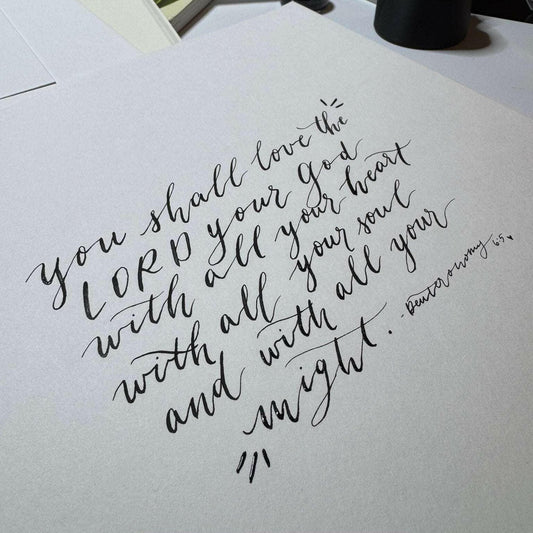 you shall love the
LORD your God
with all your heart
with all your soul
and with all your
might.
-Deuteronomy 6:5